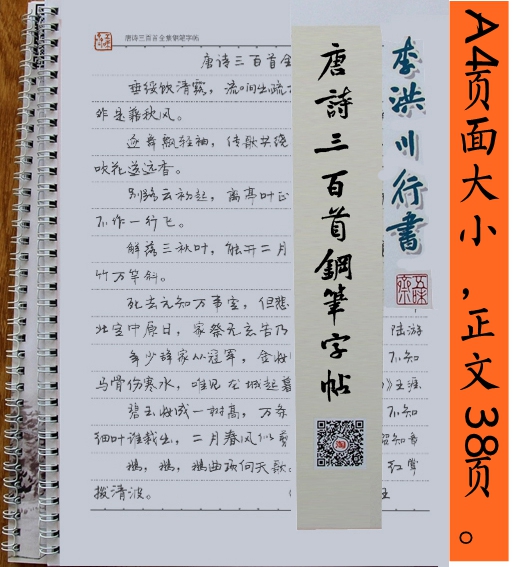 唐诗三百首全集钢笔字帖
唐诗三百首全
垂绥饮清露,流响出疏
非是藉秋风。
逐舞飘轻袖,传歌共绕
吹花送远香。
别路云初起,离亭叶正
不作一行飞。
解落三秋叶,能开二月
竹万竿斜。
死去元知万事空,但悲
北定中原日,家祭无忘告乃 陆游
年少辞家从冠军,金妆 不知
马骨伤寒水,唯见龙城起暮 》王涯
碧玉妆成一树高,万条 不知
细叶谁裁出,二月春风似剪 知章
鹅,鹅,鹅曲项向天歌。 红掌
拨清波。
唐詩三百首鋼筆字帖
李洪川行書
A4页面大小,正文38页。